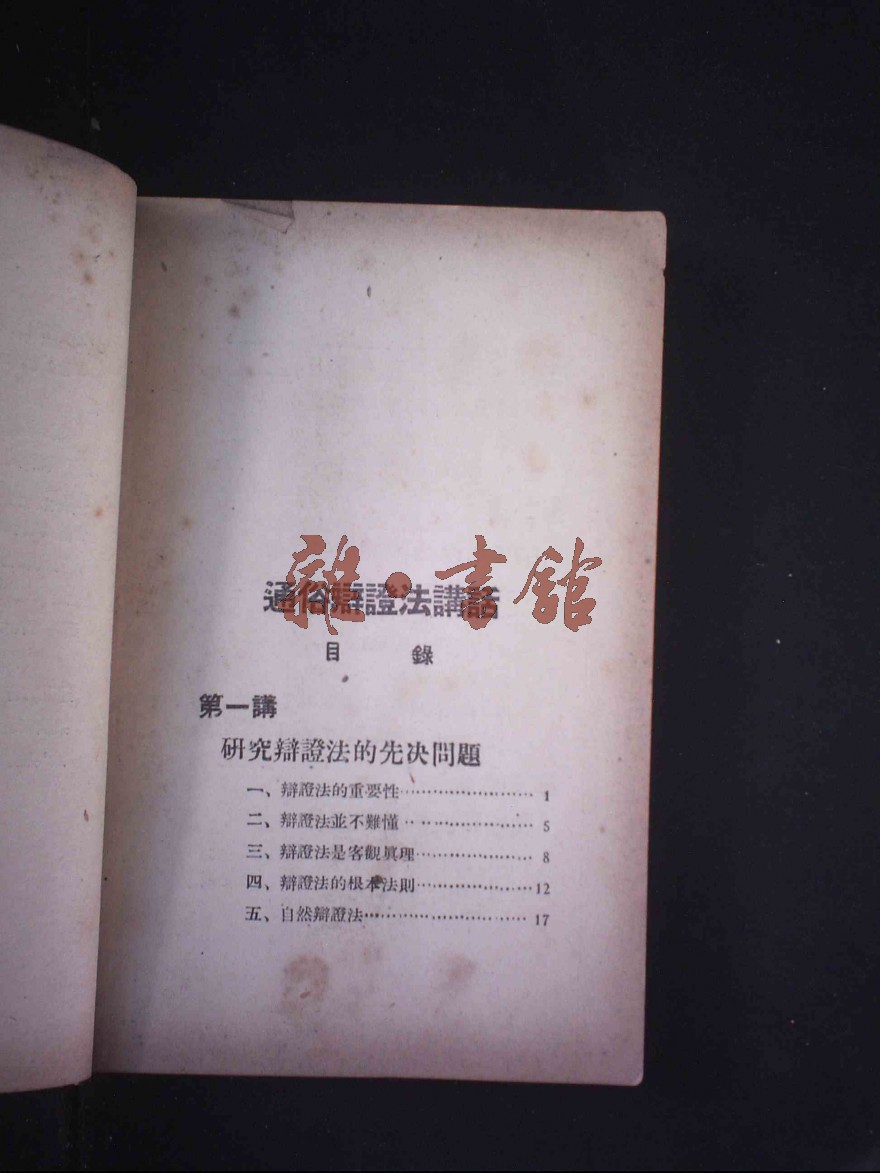 通俗辯證法講話
雜·書館
目錄
第一講
研究辯證法的先决問題
一、辯證法的重要性……………………1
二、辯證法並不難懂……………………5
三、辯證法是客觀眞理…………………8
四、辯證法的根本法則…………………12
五、自然辯證法…………………………17